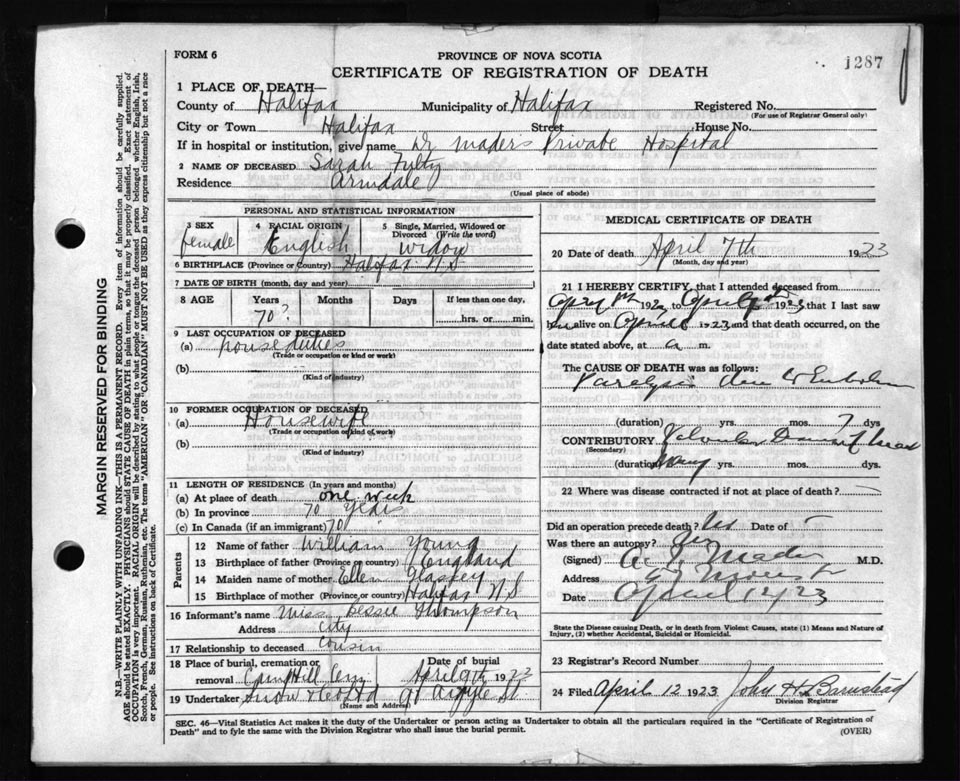 FORM 6
PROVINCE OF NOVA SCOTIA
1287
CERTIFICATE OF REGISTRATION OF DEATH
1 PLACE OF DEATH—
County of Halifax Municipality of Halifax Registered No.
(For use of Registrar General only)
City or Town Halifax Street House No.
If in hospital or institution, give name Dr Mader's Private Hospital
2 NAME OF DECEASED Sarah
Residence Armdale
(Usual place of abode)
PERSONAL AND STATISTICAL INFORMATION
3 SEX 4 RACIAL ORIGIN 5 Single, Married, Widowed or Divorced (Write the word)
female English widow
6 BIRTHPLACE (Province or Country) Halifax N.S
7 DATE OF BIRTH (month, day and year)
8 AGE Years Months Days If less than one day,
70? hrs. or min.
9 LAST OCCUPATION OF DECEASED
(a) house duties
(Trade or occupation or kind or work)
(b)
(Kind of industry)
10 FORMER OCCUPATION OF DECEASED
(a) Housewife
(Trade or occupation or kind of work)
(b)
(Kind of industry)
11 LENGTH OF RESIDENCE (In Years and months)
(a) At place of death one week
(b) In province 70 years
(c) In Canada (if an immigrant) 70
Parents
12 Name of father William Young
13 Birthplace of father (Province or Country) England
14 Maiden name of mother Ellen
15 Birthplace of mother (Province or Country) Halifax N.S
16 Informant's name Miss Bessie Thompson
Address City
17 Relationship to deceased Cousin
18 Place of burial, cremation or removal Camp Hill Cem Date of burial April 9th 1923
19 Undertaker Snow & Co Ltd 90 Argyle St
(Name and Address)
MEDICAL CERTIFICATE OF DEATH
20 Date of death April 7th 1923
(Month, day and year)
21 I HEREBY CERTIFY, that I attended deceased from
192 to 1923 that I last saw
alive on April 1923 and that death occurred, on the
date stated above, at a m.
The CAUSE OF DEATH was as follows:
(duration) yrs. mos. 7 dys.
CONTRIBUTORY Valvular
(Secondary)
(duration) many yrs. mos. dys.
22 Where was disease contracted if not at place of death?
Did an operation precede death? Date of
Was there an autopsy?
(Signed) Mader M.D.
Address
Date April 12/23
State the Disease causing Death, or in death from Violent Causes, state (1) Means and Nature of
Injury, (2) whether Accidental, Suicidal or Homicidal.
23 Registrar's Record Number
24 Filed April 12 1923 John H Barnstead
Division Registrar
SEC. 46—Vital Statistics Act makes it the duty of the Undertaker or person acting as Undertaker to obtain all the particulars required in the "Certificate of Registration of
Death" and to fyle the same with the Division Registrar who shall issue the burial permit.
(OVER)
MARGIN RESERVED FOR BINDING
N.B.—WRITE PLAINLY WITH UNFADING INK—THIS IS A PERMANENT RECORD. Every item of information should be carefully supplied.
AGE should be stated EXACTLY. PHYSICIANS should STATE CAUSE OF DEATH in plain terms, so that it may be properly classified. Exact statement of
OCCUPATION is very important. RACIAL ORIGIN will be described by stating to what people or tongue the deceased person belonged whether English, Irish,
Scotch, French, German, Russian, Ruthenian, etc. The terms "AMERICAN" OR "CANADIAN" MUST NOT BE USED as they express citizenship but not a race
or people. See instructions on back of Certificate.